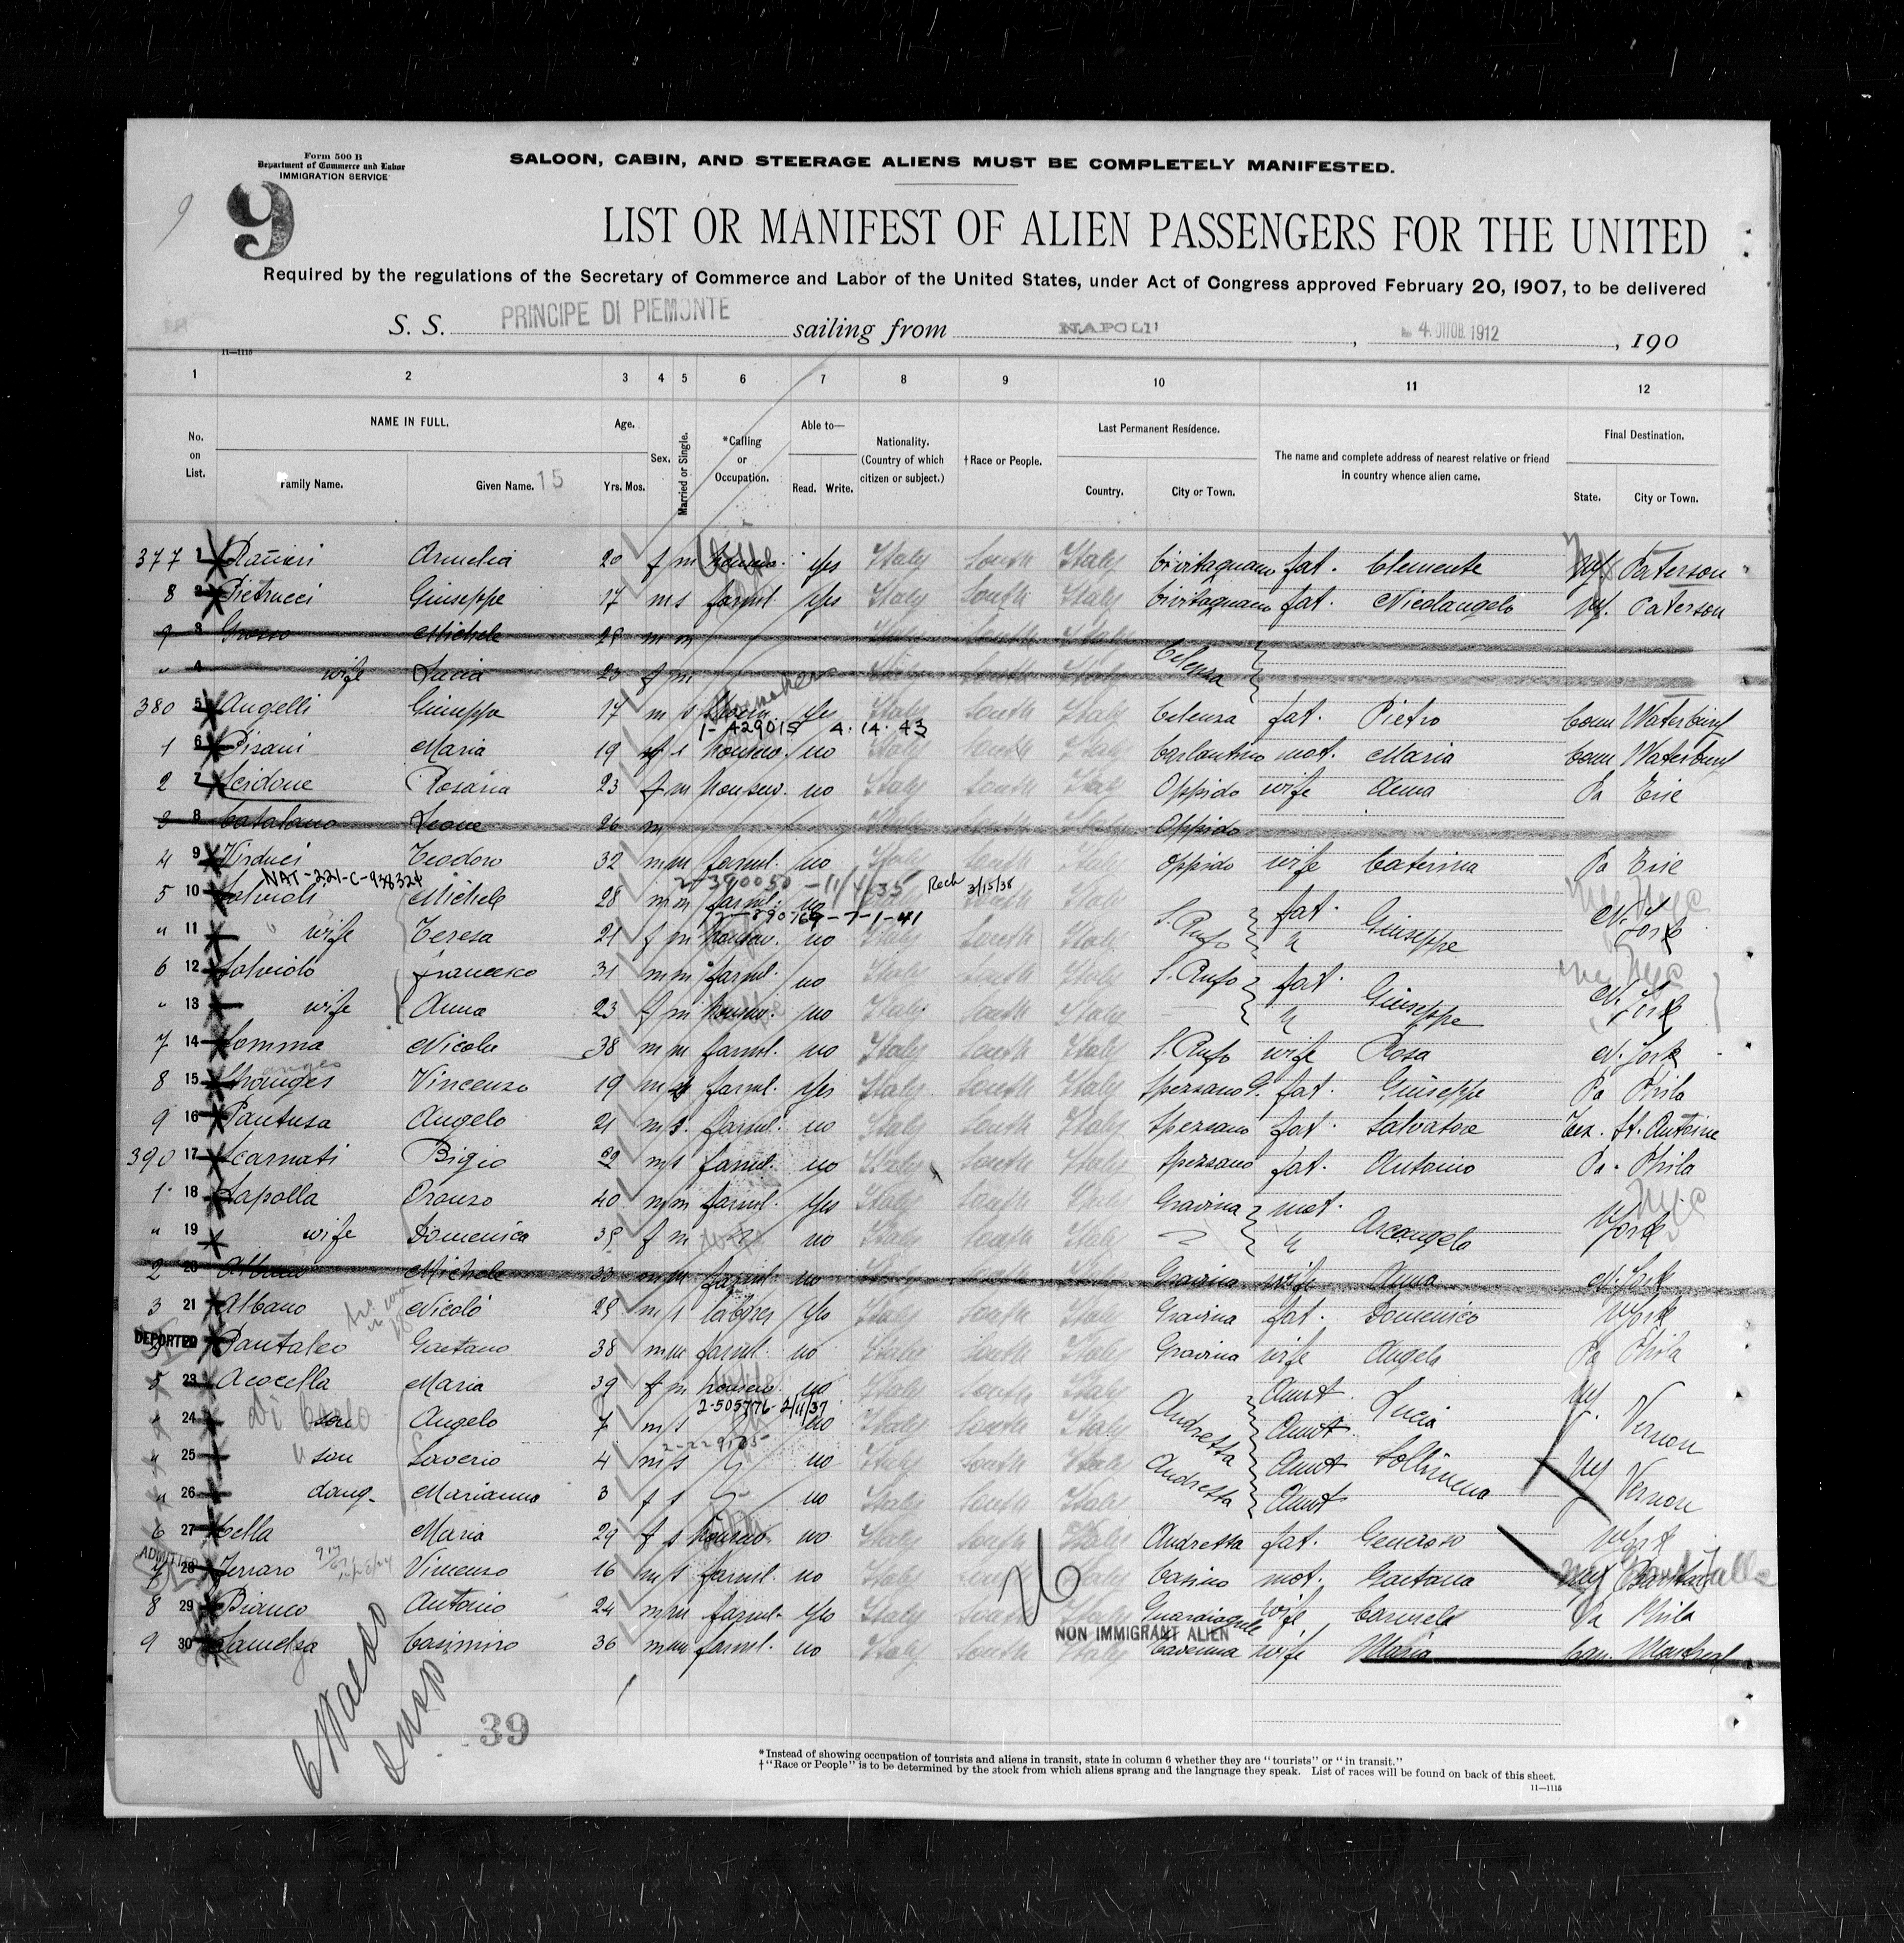 Form 500 B
Department of Commerce and Labor
IMMIGRATION SERVICE
SALOON, CABIN, AND STEERAGE ALIENS MUST BE COMPLETELY MANIFESTED.
9
9
LIST OR MANIFEST OF ALIEN PASSENGERS FOR THE UNITED
Required by the regulations of the Secretary of Commerce and Labor of the United States, under Act of Congress approved February 20, 1907, to be delivered
S. S. PRINCIPE DI PIEMONTE sailing from NAPOLI, 4. OTTOB. 1912, 190
11—1115
1 2 3 4 5 6 7 8 9 10 11 12
No. on List. NAME IN FULL. Family Name. Given Name. 15 Age. Yrs. Mos. Sex. Married or Single. *Calling or Occupation. Able to— Read. Write. Nationality. (Country of which citizen or subject.) †Race or People. Last Permanent Residence. Country. City or Town. The name and complete address of nearest relative or friend in country whence alien came. Final Destination. State. City or Town.
377 1 Ranieri Amelia 20 f m yes Italy South Italy Civitaquana fat. Clemente Paterson
8 2 Pietrucci Giuseppe 17 m s farml. yes Italy South Italy Civitaquana fat. Nicolangelo Paterson
9 3 Grosso Michele 28 m m Italy South Italy
" 4 wife Lucia 23 f m Italy South Italy Celenza
380 5 Angelli Giuseppe 17 m s Shoemaker yes Italy South Italy Celenza fat. Pietro Conn Waterbury
1-429015 4.14.43
1 6 Pisani Maria 19 f s housew. no Italy South Italy Carlantino mot. Maria Conn Waterbury
2 7 Scidone Rosaria 23 f m housew. no Italy South Italy Oppido wife Anna Pa Erie
3 8 Catalano Leone 26 m Italy South Italy Oppido
4 9 Virduci Teodoro 32 m m farml. no Italy South Italy Oppido wife Caterina Pa Erie
NAT-221-C-938324 2-390050-11/4/35 Rech 3/15/38
5 10 Michele 28 m m farml. no Italy South Italy S. Rufo fat. Giuseppe N. York
" 11 wife Teresa 21 f m housew. no Italy South Italy
6 12 Salviolo Francesco 31 m m farml. no Italy South Italy S. Rufo fat. Giuseppe N. York
" 13 wife Anna 23 f m housew. no Italy South Italy
7 14 Somma Nicola 38 m m farml. no Italy South Italy S. Rufo wife Rosa N. York
8 15 Vincenzo 19 m s farml. yes Italy South Italy Spezzano G. fat. Giuseppe Pa Phila
9 16 Pantusa Angelo 21 m s. farml. no Italy South Italy Spezzano fat. Salvatore Tex. St. Antoine
390 17 Scarnati Bigio m s farml. no Italy South Italy Spezzano fat. Antonio Pa. Phila
1 18 Lapolla Oronzo 40 m m farml. yes Italy South Italy Gravina mot. Arcangela N York
" 19 wife Domenica 35 f m no Italy South Italy
2 20 Albano Michele 33 m m farml. no Italy South Italy Gravina wife Anna N. York
3 21 Albano Nicolò 25 m s labores yes Italy South Italy Gravina fat. Domenico N York
DEPORTED 22 Pantaleo Gaetano 38 m m farml. no Italy South Italy Gravina wife Angela Pa Phila
5 23 Acocella Maria 39 f m housew. no Italy South Italy Andretta Aunt Lucia NY Vernon
Di Carlo 2-505776-2/11/37
" 24 son Angelo 7 m s no Italy South Italy Aunt
" 25 son Saverio 4 m s no Italy South Italy Andretta Aunt Sollimena NY Vernon
" 26 daug. Marianna 3 f s no Italy South Italy Aunt
6 27 Cella Maria 29 f s housew. no Italy South Italy Andretta fat. Generoso N York
ADMITTED 7 28 Ferraro Vincenzo 16 m s farml. no Italy South Italy Casino mot. Gaetana
8 29 Bianco Antonio 24 m m farml. yes Italy South Italy Guardiagrele wife Carmela Pa Phila
NON IMMIGRANT ALIEN
9 30 Casimiro 36 m m farml. no Italy South Italy wife Maria Can. Montreal
Insp
39
*Instead of showing occupation of tourists and aliens in transit, state in column 6 whether they are "tourists" or "in transit."
†"Race or People" is to be determined by the stock from which aliens sprang and the language they speak. List of races will be found on back of this sheet.
11—1115